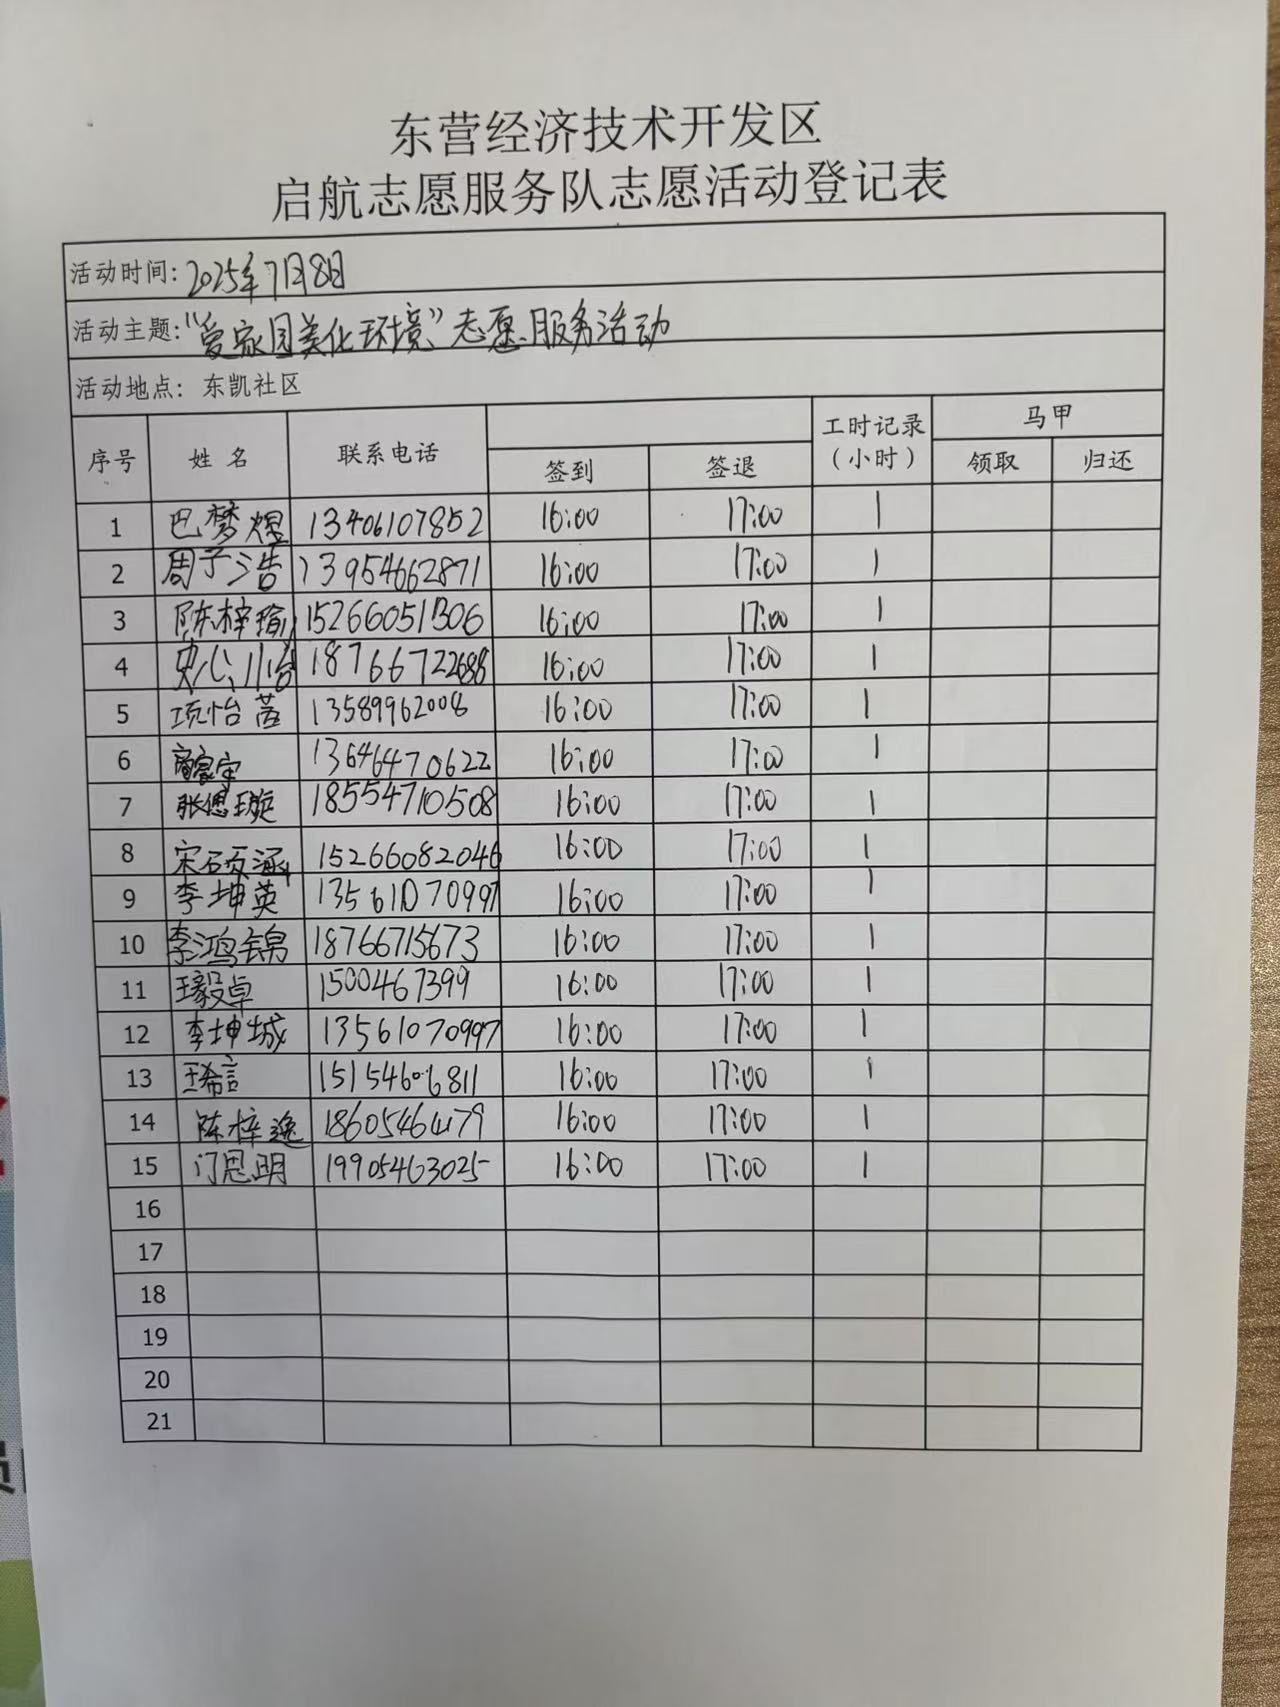 东营经济技术开发区
启航志愿服务队志愿活动登记表
活动时间：2025年7月8日
活动主题："爱家园美化环境"志愿服务活动
活动地点：东凯社区
序号 姓名 联系电话 签到 签退 工时记录（小时） 马甲 领取 归还
1 巴梦煜 13406107852 16:00 17:00 1
2 周子浩 13954662871 16:00 17:00 1
3 陈梓瑜 15266051306 16:00 17:00 1
4 史心 18766722688 16:00 17:00 1
5 项怡 13589962008 16:00 17:00 1
6 13646470622 16:00 17:00 1
7 张思璇 18554710508 16:00 17:00 1
8 宋硕涵 15266082046 16:00 17:00 1
9 李坤英 13561070997 16:00 17:00 1
10 李鸿锦 18766715673 16:00 17:00 1
11 王毅卓 1500467399 16:00 17:00 1
12 李坤城 13561070997 16:00 17:00 1
13 王希言 15154606811 16:00 17:00 1
14 陈梓逸 16:00 17:00 1
15 门思明 19905463025 16:00 17:00 1
16
17
18
19
20
21